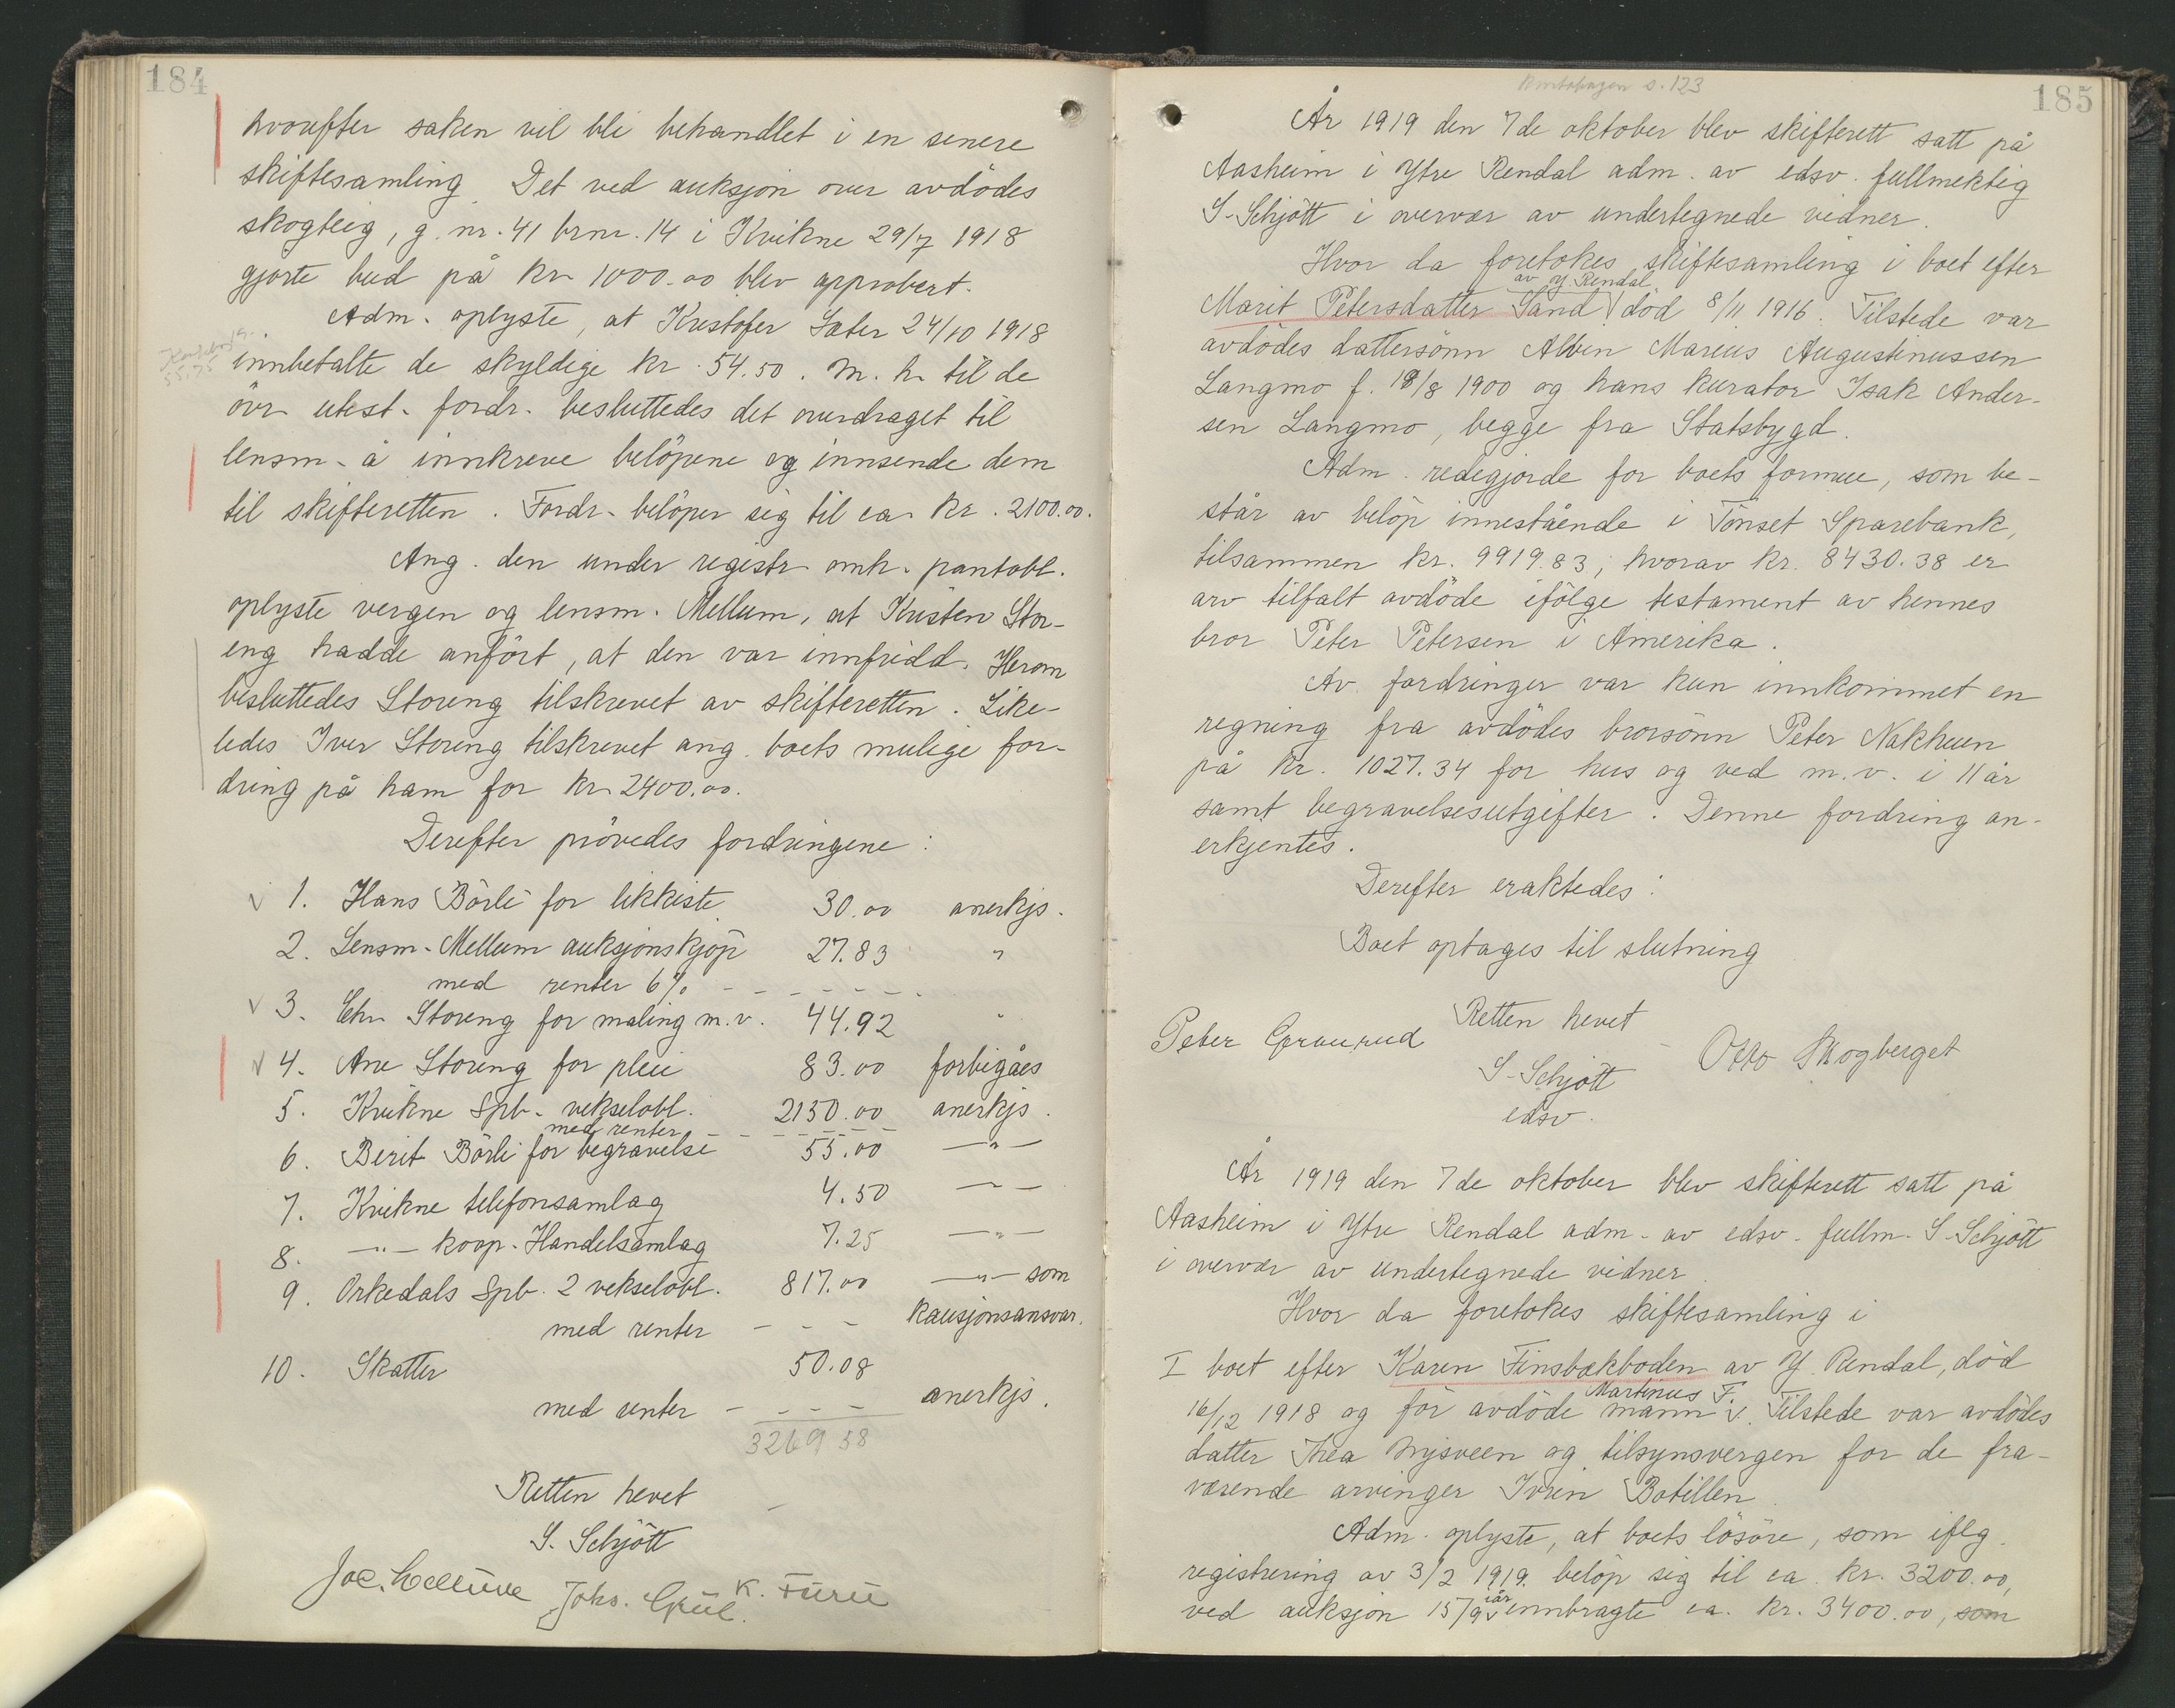 184
hvorefter saken vil bli behandlet i en senere
skiftesamling. Det ved auksjon over avdödes
skogteig, g. nr. 41 brnr. 14 i Kvikne 29/7 1918
gjorte bud på kr 1000.00 blev approbert.
Adm. oplyste, at Kristofer Sæter 24/10 1918
innbetalte de skyldige kr. 54.50. M. h. til de
övr. utest. fordr. besluttedes det overdraget til
lensm. å innkreve belöpene og innsende dem
til skifteretten. Fordr. belöper sig til ca. kr. 2100.00.
Ang. den under registr. omh. pantobl.
oplyste vergen og lensm. Mellum, at Kristen Stor-
eng hadde anfört, at den var innfridd. Herom
besluttedes Storeng tilskrevet av skifteretten. Like-
ledes Iver Storeng tilskrevet ang. boets mulige for-
dring på ham for kr. 2400.00.
Derefter prövedes fordringene:
1. Hans Börli for likkiste 30.00 anerkjs.
2. Lensm. Mellum auksjonskjöp 27.83 "
med renter 6% - - - - - -
3. Chr. Storeng for maling m.v. 44.92 "
4. Ane Storeng for pleie 83.00 forbigåes
5. Kvikne Spb. vekselobl. 2150.00 anerkjs.
med renter - - - - - - -
6. Berit Börli for begravelse 55.00 —"—
7. Kvikne telefonsamlag 4.50 —"—
8. —"— koop. Handelsamlag 7.25 —"—
9. Orkedals Spb. 2 vekselobl. 817.00 —"— som
med renter - - - kausjonsansvar.
10. Skatter 50.08
med renter - - - - anerkjs.
3269 58
Retten hevet
S. Schjött
K. Furu
Johs.
185
s. 123
År 1919 den 7de oktober blev skifterett satt på
Aasheim i Ytre Rendal adm. av edsv. fullmektig
S. Schjött i overvær av undertegnede vidner.
Hvor da foretokes skiftesamling i boet efter
av Y. Rendal
Marit Petersdatter Sand död 8/11 1916. Tilstede var
avdödes dattersönn Albin Marius Augustinussen
Langmo f. 18/8 1900 og hans kurator Isak Ander-
sen Langmo, begge fra Statsbygd.
Adm. redegjorde for boets formue, som be-
står av belöp innestående i Tönset Sparebank,
tilsammen kr. 9919.83, hvorav kr. 8430.38 er
arv tilfalt avdöde ifölge testament av hennes
bror Peter Petersen i Amerika.
Av fordringer var kun innkommet en
regning fra avdödes brorsönn Peter Nakkuen
på kr. 1027.34 for hus og ved m.v. i 11 år
samt begravelsesutgifter. Denne fordring an-
erkjentes.
Derefter eraktedes:
Boet optages til slutning
Retten hevet
Peter Graurud
S. Schjött
Otto Skogberget
edsv.
År 1919 den 7de oktober blev skifterett satt på
Aasheim i Ytre Rendal adm. av edsv. fullm. S. Schjött
i overvær av undertegnede vidner
Hvor da foretokes skiftesamling i
I boet efter Karen Finsbækboden av Y. Rendal, död
Martinus F.
16/12 1918 og för avdöde mann. Tilstede var avdödes
datter Thea Mysveen og tilsynsvergen for de fra-
værende arvinger Iven Botillen
Adm. oplyste, at boets lösöre, som iflg.
registrering av 3/2 1919 belöp sig til ca. kr. 3200.00,
iår
ved auksjon 15/9 innbragte ca. kr. 3400.00, som